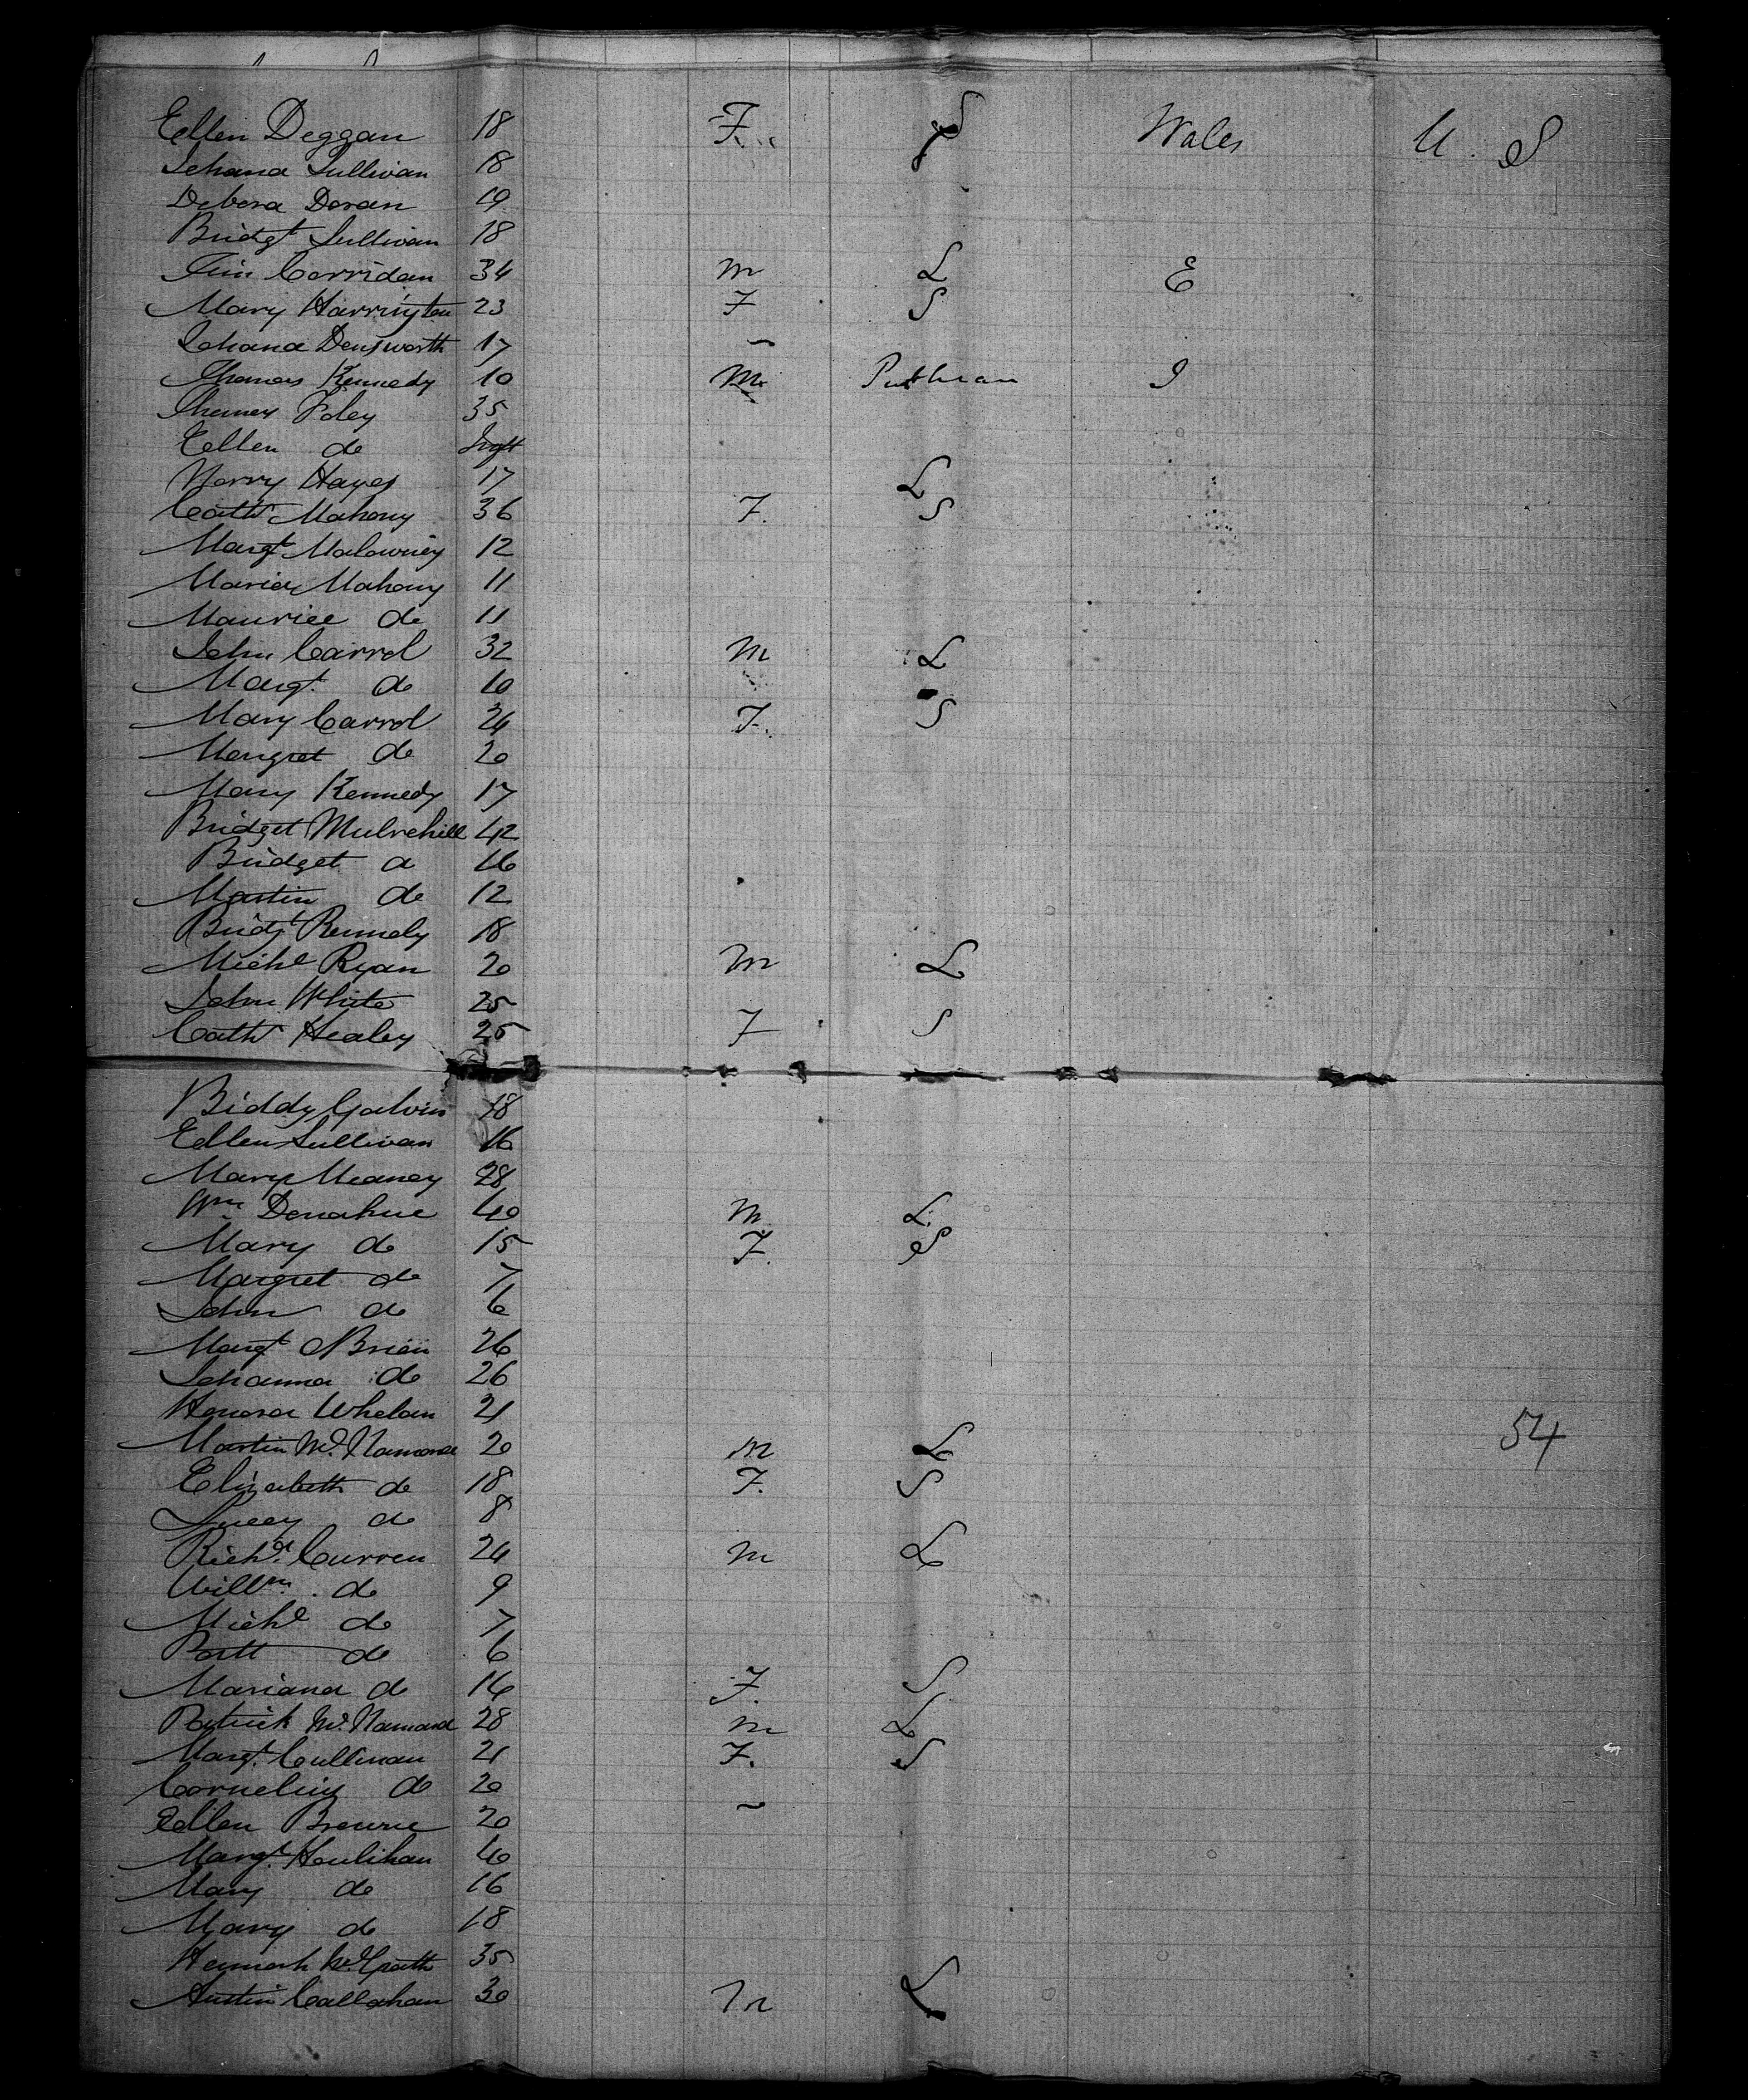 Ellen Deggan 18 F. S Wales U. S
Johana Sullivan 18
Debora Doran 19
Bridgt Sullivan 18
Tim Corridan 34 M L E
Mary Harrington 23 F S
Johana Densworth 17 ~
Thomas Kennedy 10 M. I
Foley 35
Ellen do Inft
Norry Hayes 17 L
Cath Mahony 36 F. S
Margt Malowney 12
Maria Mahony 11
Maurice do 11
John Carrol 32 M L
Margt. do 10
Mary Carrol 24 F. S
Margret do 20
Mary Kennedy 17
Bridget Mulvehill 42
Bridget a 16
Martin do 12
Bridgt Kennedy 18
Michl Ryan 20 M L
John White 25
Cath Healey 25 F S
Biddy Galvin 18
Ellen Sullivan 16
Mary Meaney 28
Wm Donahue 40 M L.
Mary do 15 F. S
Margret do 7
John do 6
Margt OBrien 26
Johanna do 26
Honora Whelan 21
54
Martin Mc. Namara 20 M L
Elizabeth do 18 F. S
Lucey do 8
Richd. Curren 24 M L
Willm. do 9
Michl do 7
Patt do 6
Mariana do 16 F. S
Patrick Mc. Namara 28 M L
Margt. Cullinan 21 F. S
Cornelius do 20
Ellen Browne 20 ~
Margt. Houlihan 40
Mary do 16
Mary do 18
Mc. Grath 35
Austin Callahan 30 M L